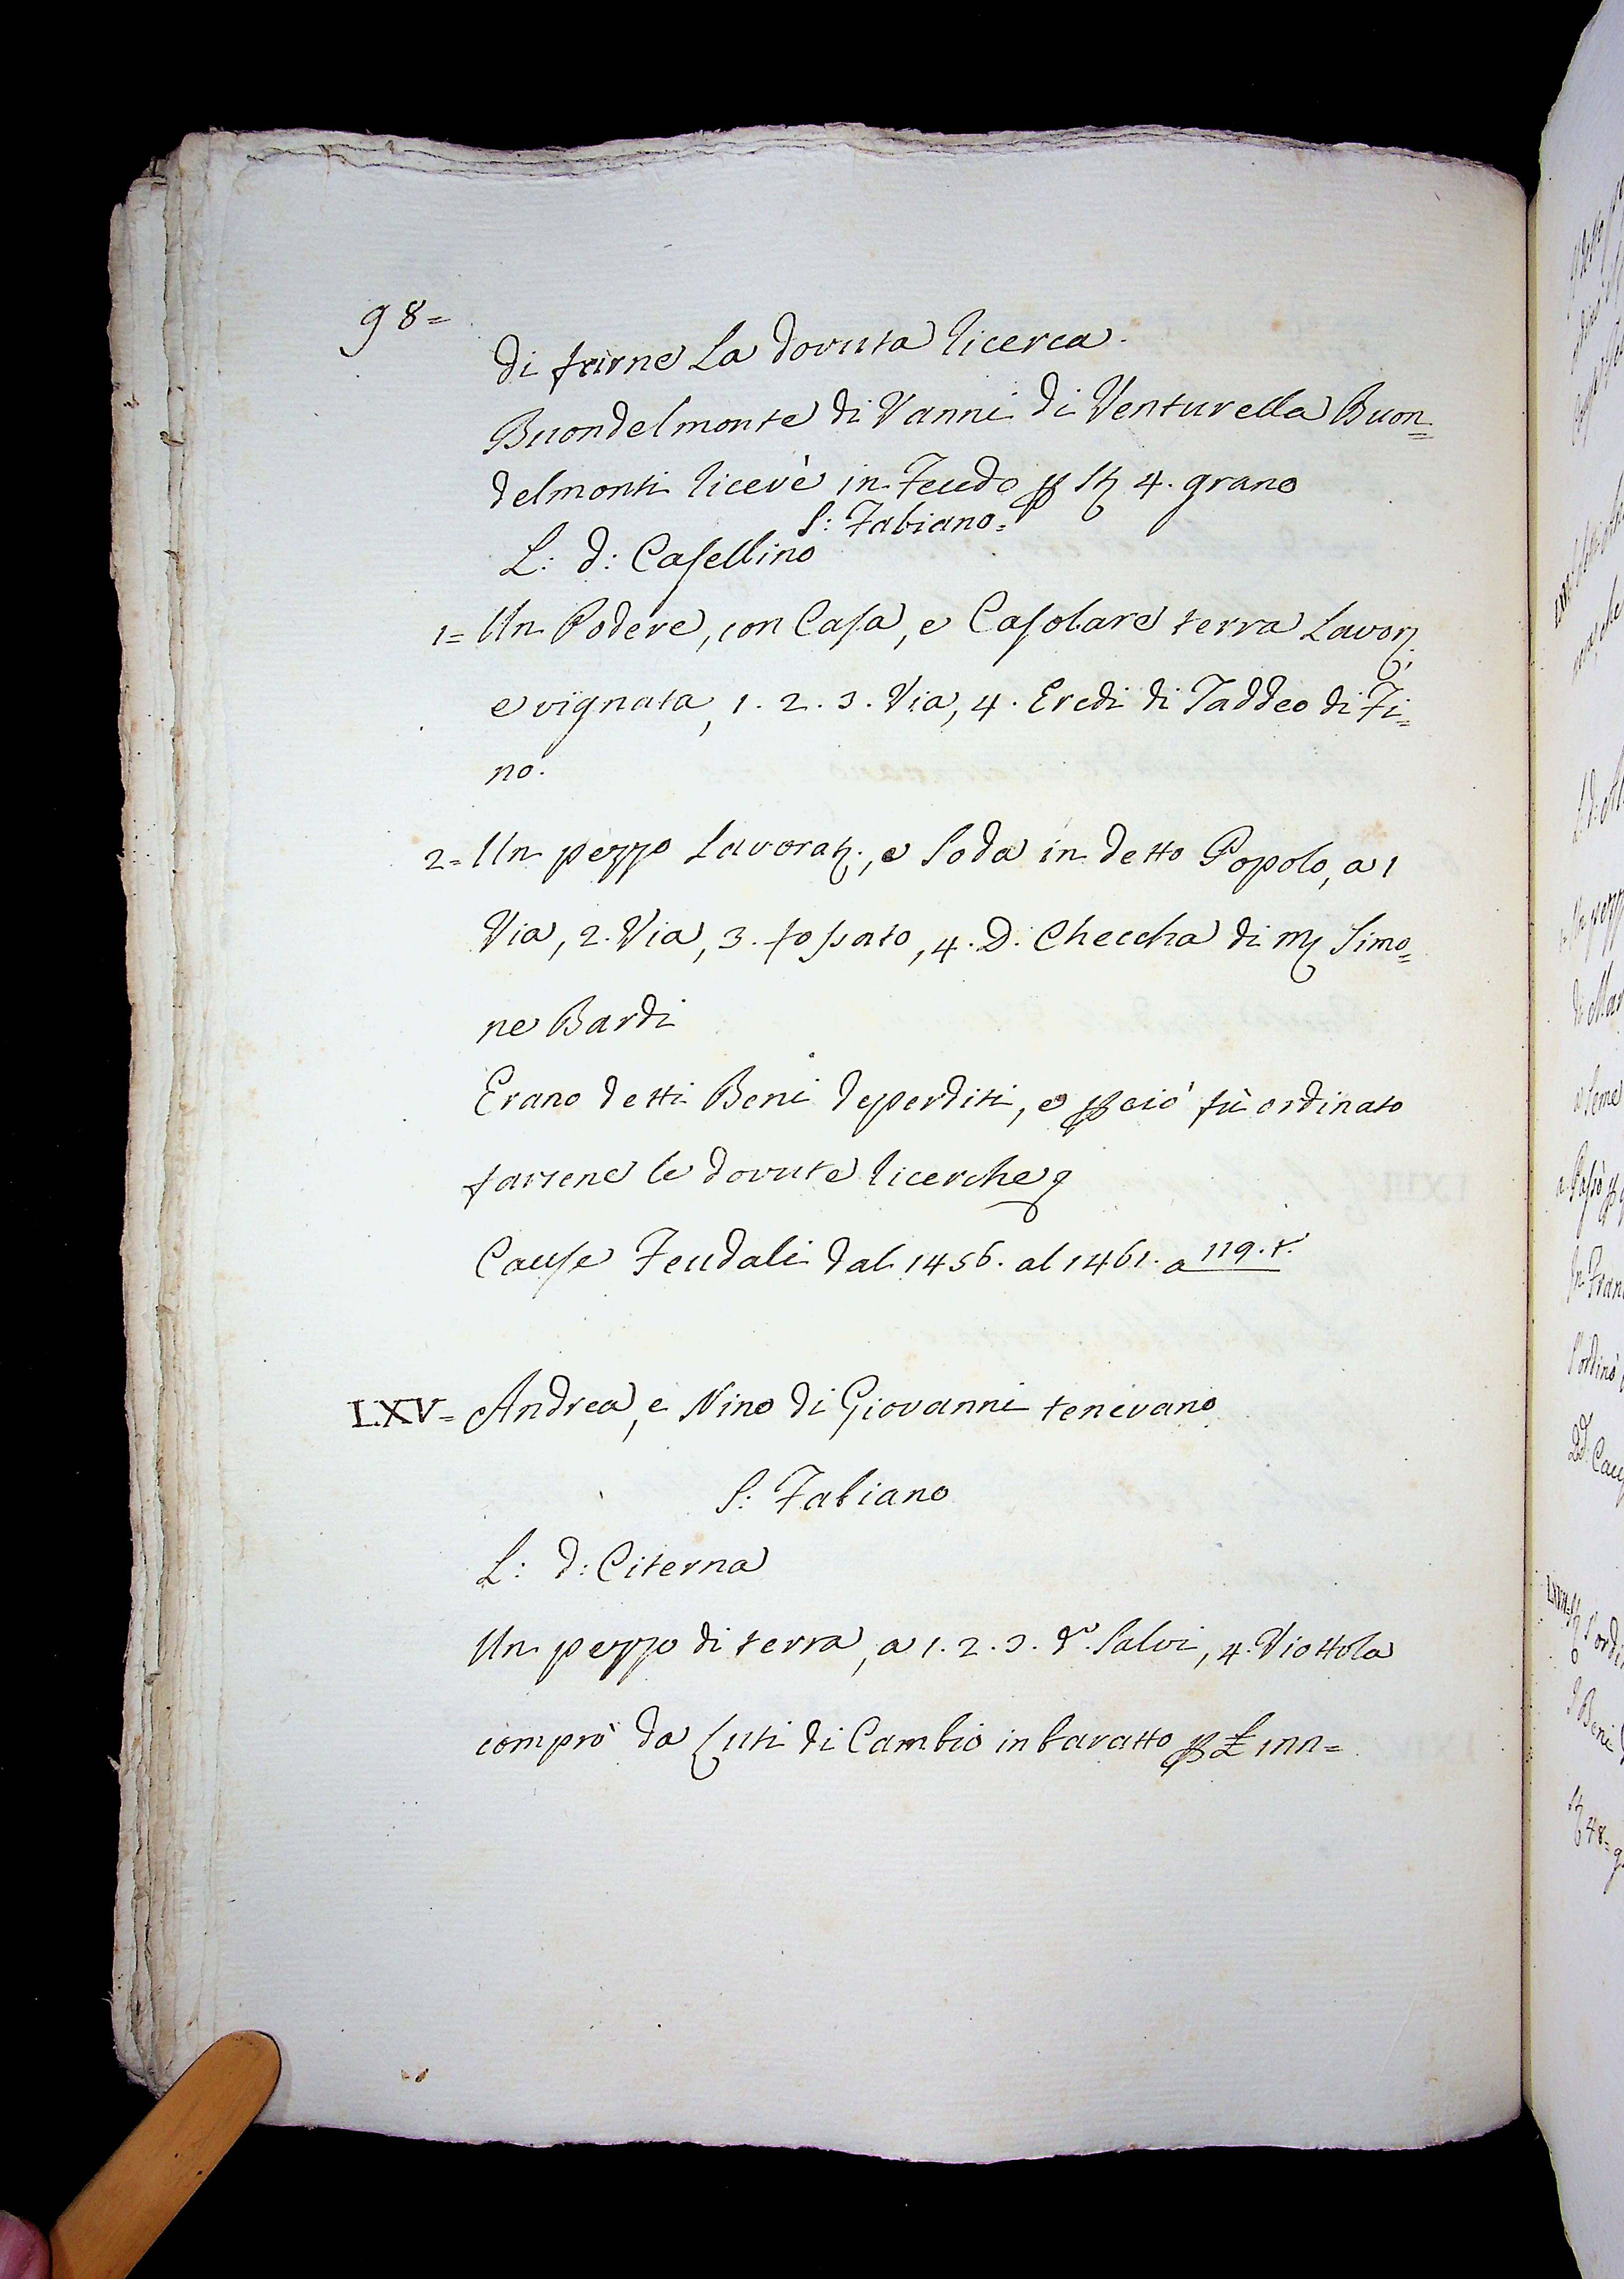 98=
di farne La dovuta ricerca.
Buondelmonte di Vanni di Venturella Buon=
delmonti ricevè in Feudo p St 4. grano
S: Fabiano=
L: d: Casellino
1= Un Podere, con Casa, e Casolare terra Lavor.
e vignata, 1. 2. 3. Via, 4. Eredi di Taddeo di Fi=
no.
2= Un pezzo Lavorat., e Soda in detto Popolo, a 1
Via, 2. Via, 3. fossato, 4. D. Checcha di m Simo=
ne Bardi
Erano detti Beni deperditi, e pciò fù ordinato
farsene le dovute ricerche
Cause Feudali dal 1456. al 1461. a 119. t.
LXV= Andrea, e Nino di Giovanni tenevano
S: Fabiano
L: d: Citerna
Un pezzo di terra, a 1. 2. 3. do. Salvi, 4. Viottola
comprò da Luti di Cambio in baratto p £ inn=